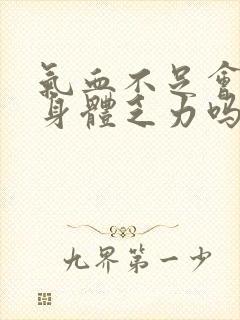 氣血不足會
身體乏力嗎
九界第一少